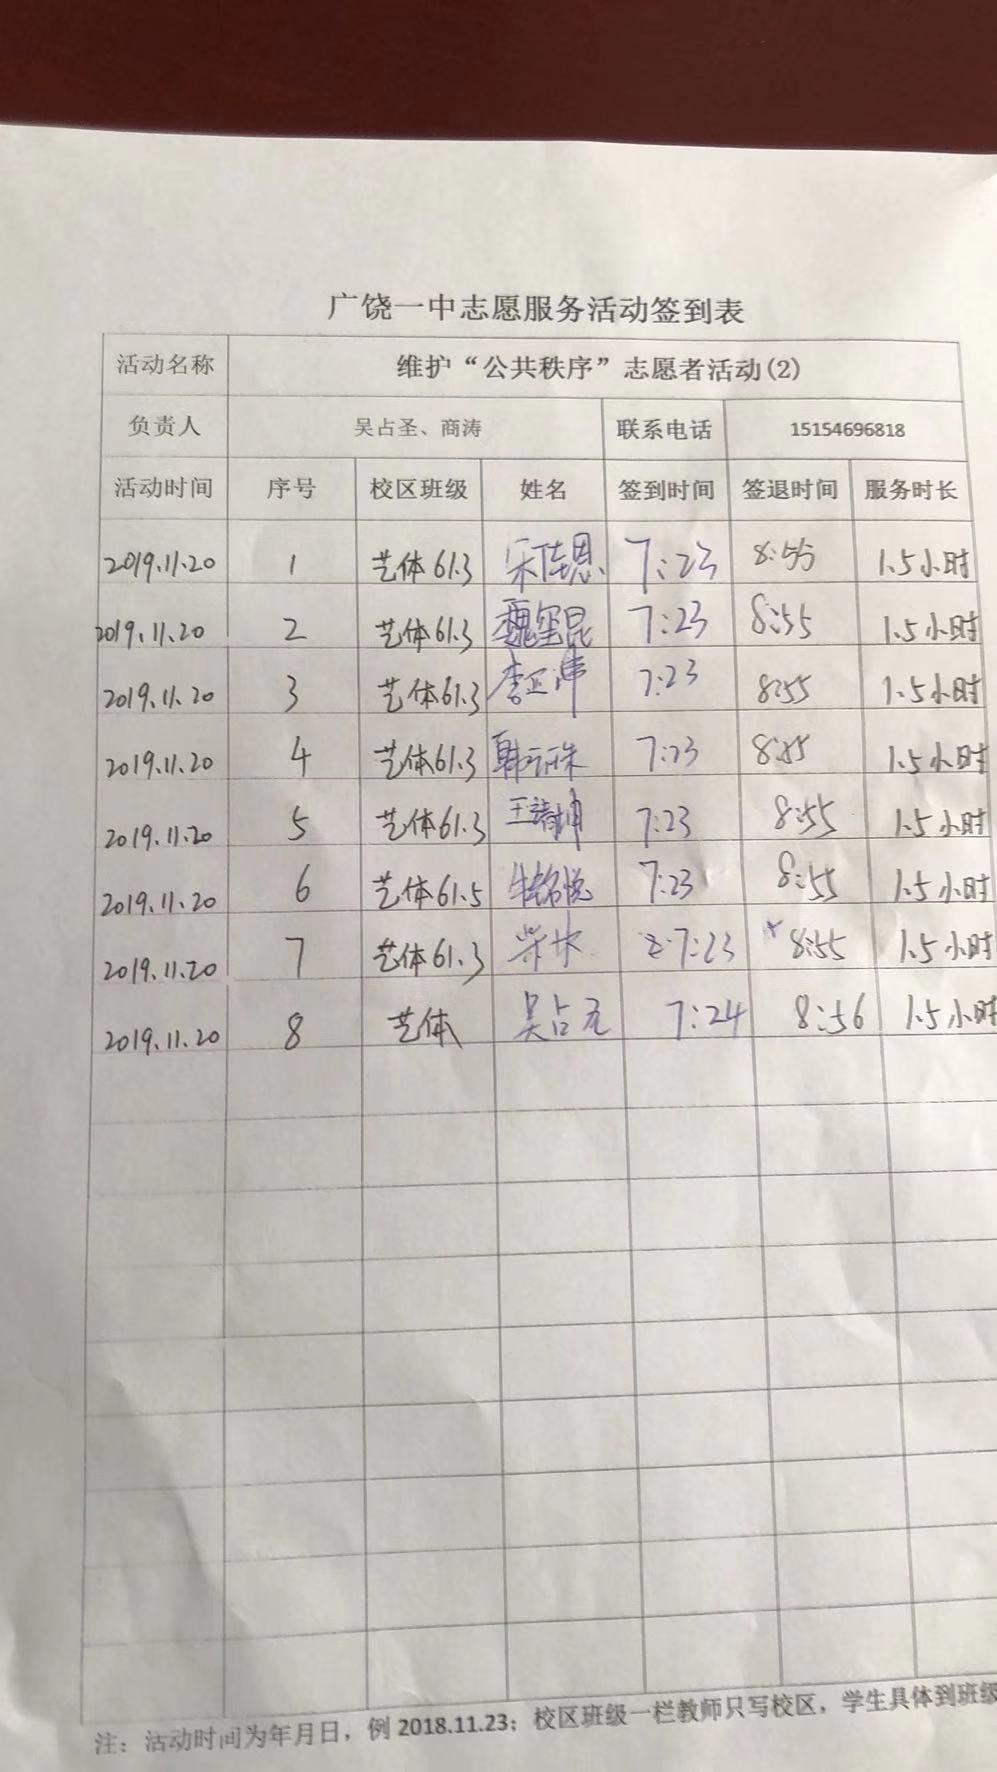 广饶一中志愿服务活动签到表
活动名称 维护“公共秩序”志愿者活动(2)
负责人 吴占圣、商涛 联系电话 15154696818
活动时间 序号 校区班级 姓名 签到时间 签退时间 服务时长
2019.11.20 1 艺体61.3 宋佳恩 7:23 8:55 1.5小时
2019.11.20 2 艺体61.3 魏玺昆 7:23 8:55 1.5小时
2019.11.20 3 艺体61.3 李正 7:23 8:55 1.5小时
2019.11.20 4 艺体61.3 韩 7:23 8:55 1.5小时
2019.11.20 5 艺体61.3 王靖坤 7:23 8:55 1.5小时
2019.11.20 6 艺体61.5 7:23 8:55 1.5小时
2019.11.20 7 艺体61.3 7:23 8:55 1.5小时
2019.11.20 8 艺体 吴占元 7:24 8:56 1.5小时
注：活动时间为年月日，例 2018.11.23；校区班级一栏教师只写校区，学生具体到班级